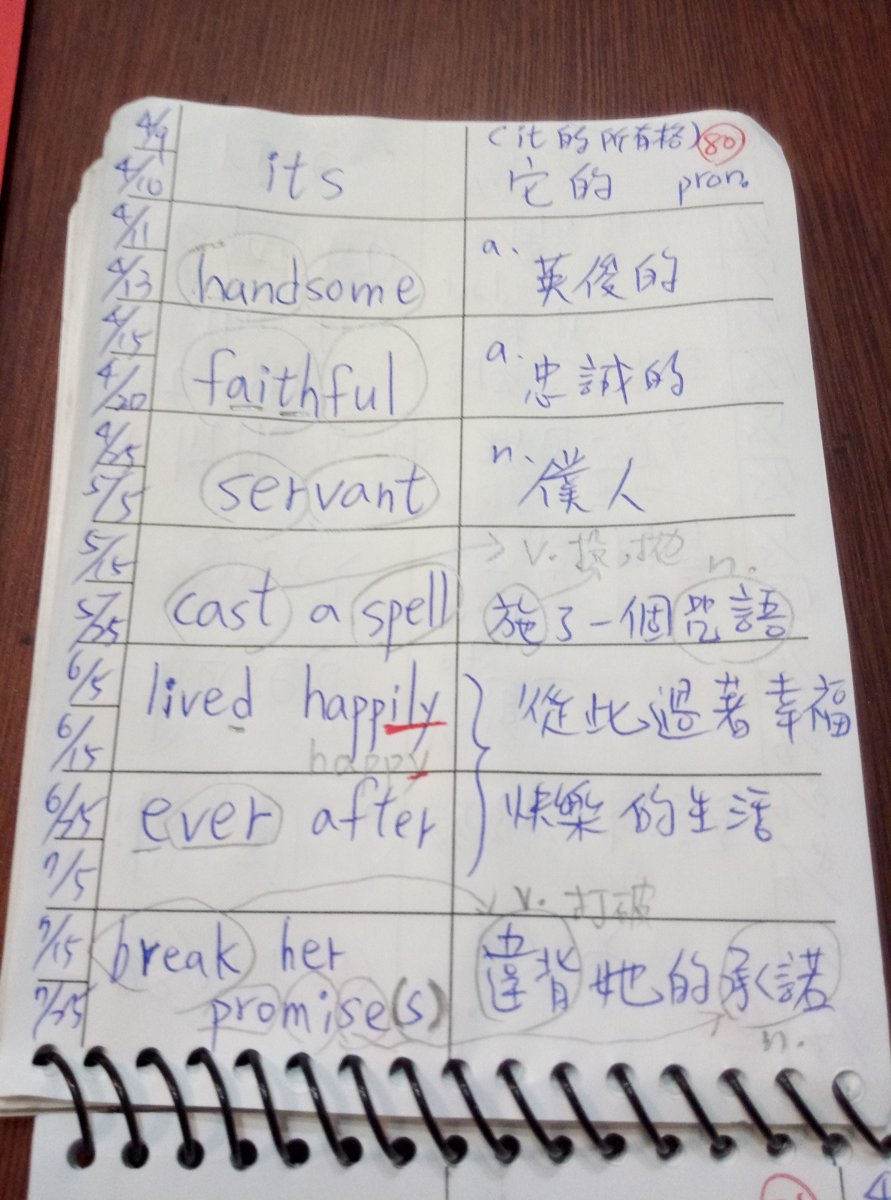 4/9
4/10
its
(it的所有格) 80
它的 pron.
4/11
4/13
handsome
a. 英俊的
4/15
4/20
faithful
a. 忠誠的
4/25
5/5
servant
n. 僕人
5/15
5/25
cast a spell
v. 投,拋
n.
施了一個咒語
6/5
6/15
lived happily
happy
從此過著幸福
6/25
7/5
ever after
快樂的生活
7/15
7/25
break her
promise(s)
v. 打破
違背她的承諾
n.